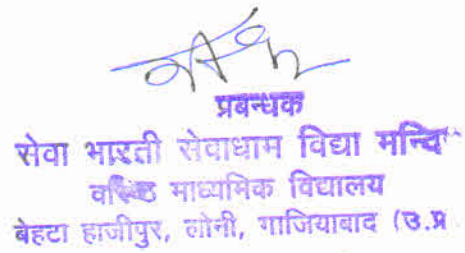 प्रबन्धक
सेवा भारती सेवाधाम विद्या मन्दि
वरिष्ठ माध्यमिक विद्यालय
बेहटा हाजीपुर, लोनी, गाजियाबाद (उ.प्र